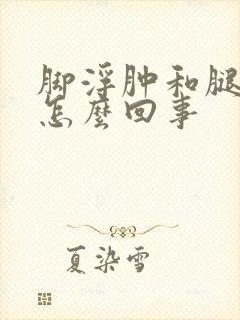 脚浮肿和腿
怎麼回事
夏染雪